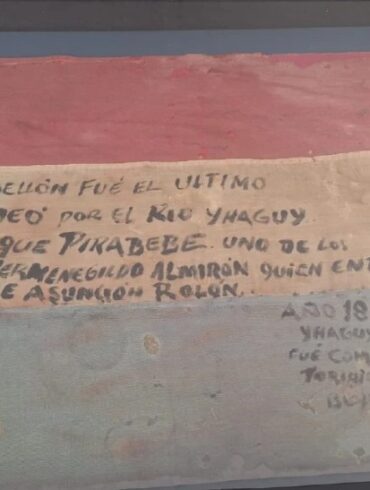 ELLÓN FUÉ EL ULTIMO
DEÓ POR EL RIO YHAGUY
QUE PIRABEBE. UNO DE LOS
ERMENEGILDO ALMIRÓN QUIEN ENT
E ASUNCIÓN ROLÓN.
AÑO 18
YHAGUY
FUÉ COM
TORIBIO